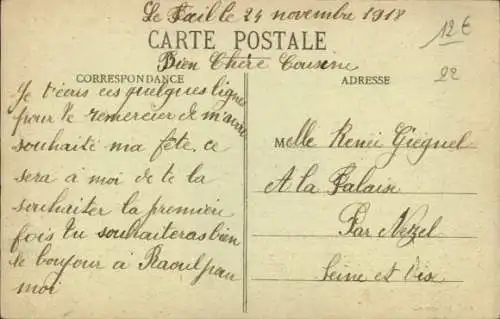 Le Fail le 24 novembre 1918
12€
CARTE POSTALE
22
Bien Chère Cousine
CORRESPONDANCE
Je t'écris ces quelques lignes
pour te remercier de m'avoir
souhaité ma fête. ce
sera à moi de te la
souhaiter la première
fois tu souhaiteras bien
le bonjour à Raoul pour
moi
ADRESSE
Melle Renée Gieguel
A la Falaise
Par Nézel
Seine et Oise